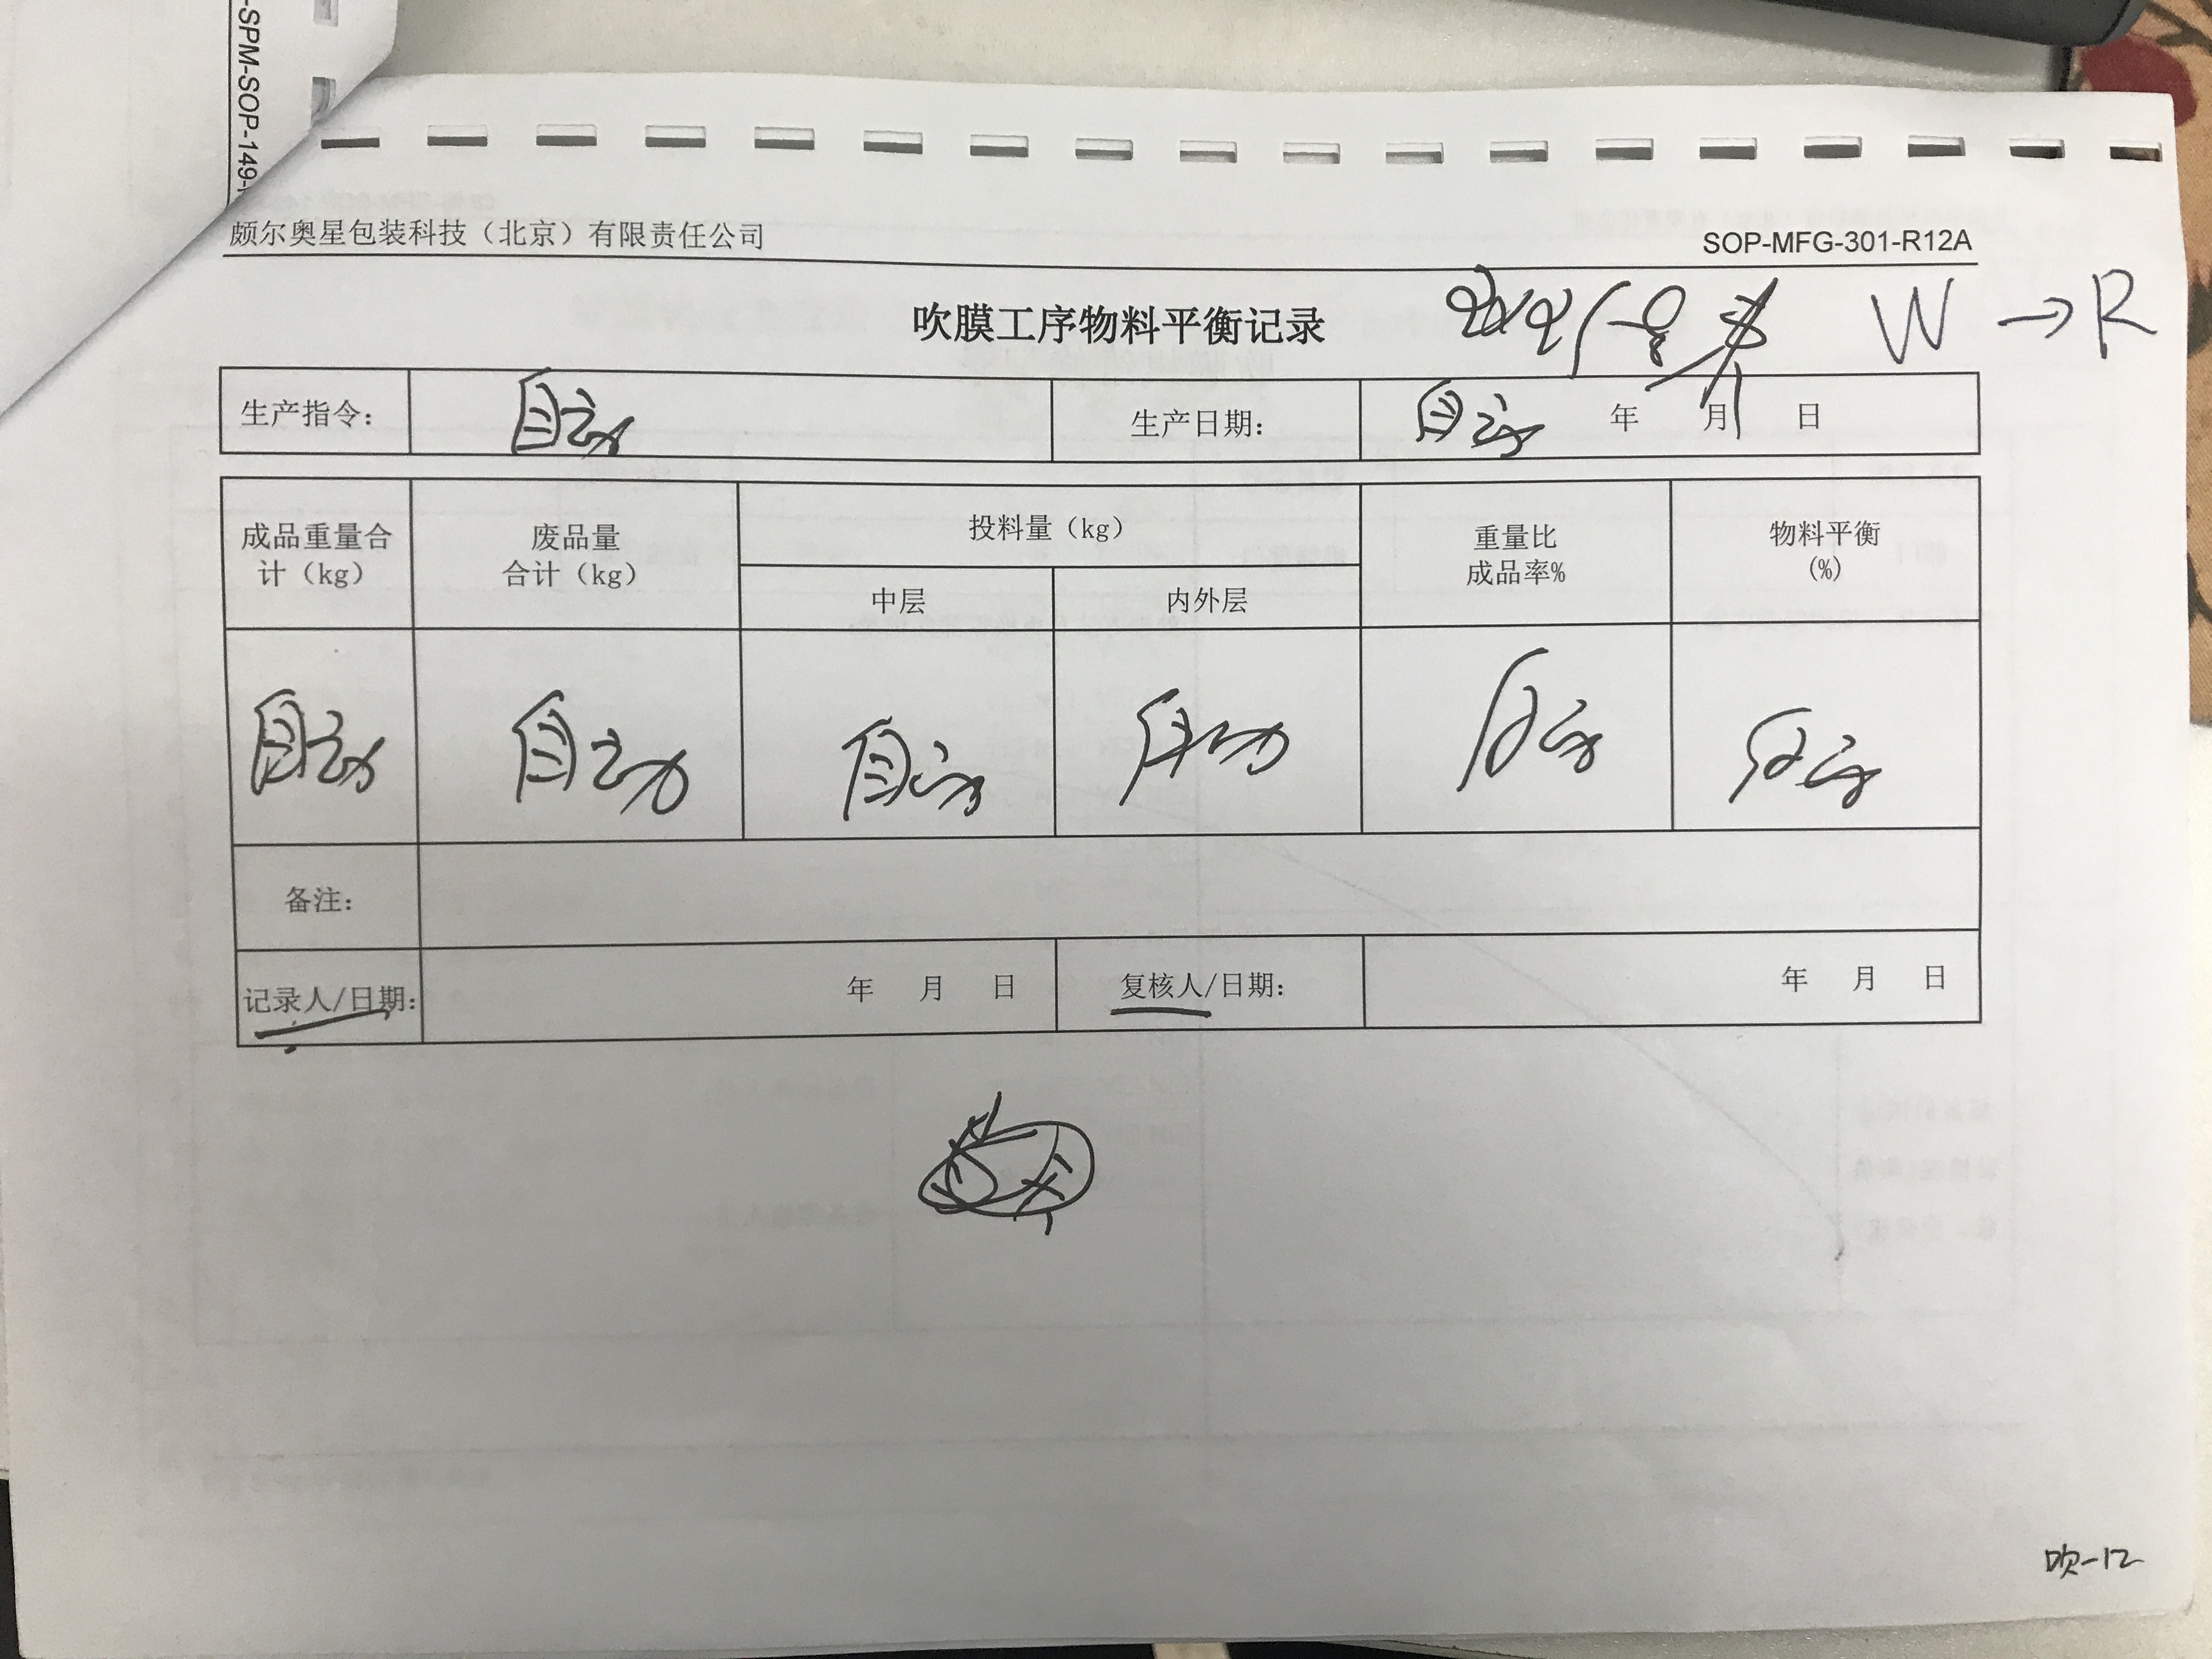 -SPM-SOP-149-
颇尔奥星包装科技（北京）有限责任公司
SOP-MFG-301-R12A
吹膜工序物料平衡记录
W → R
生产指令： 自动 生产日期： 自动 年 月 日
成品重量合计（kg） 废品量合计（kg） 投料量（kg） 重量比成品率% 物料平衡(%)
中层 内外层
自动 自动 自动 自动 自动 自动
备注：
记录人/日期： 年 月 日 复核人/日期： 年 月 日
吹-12